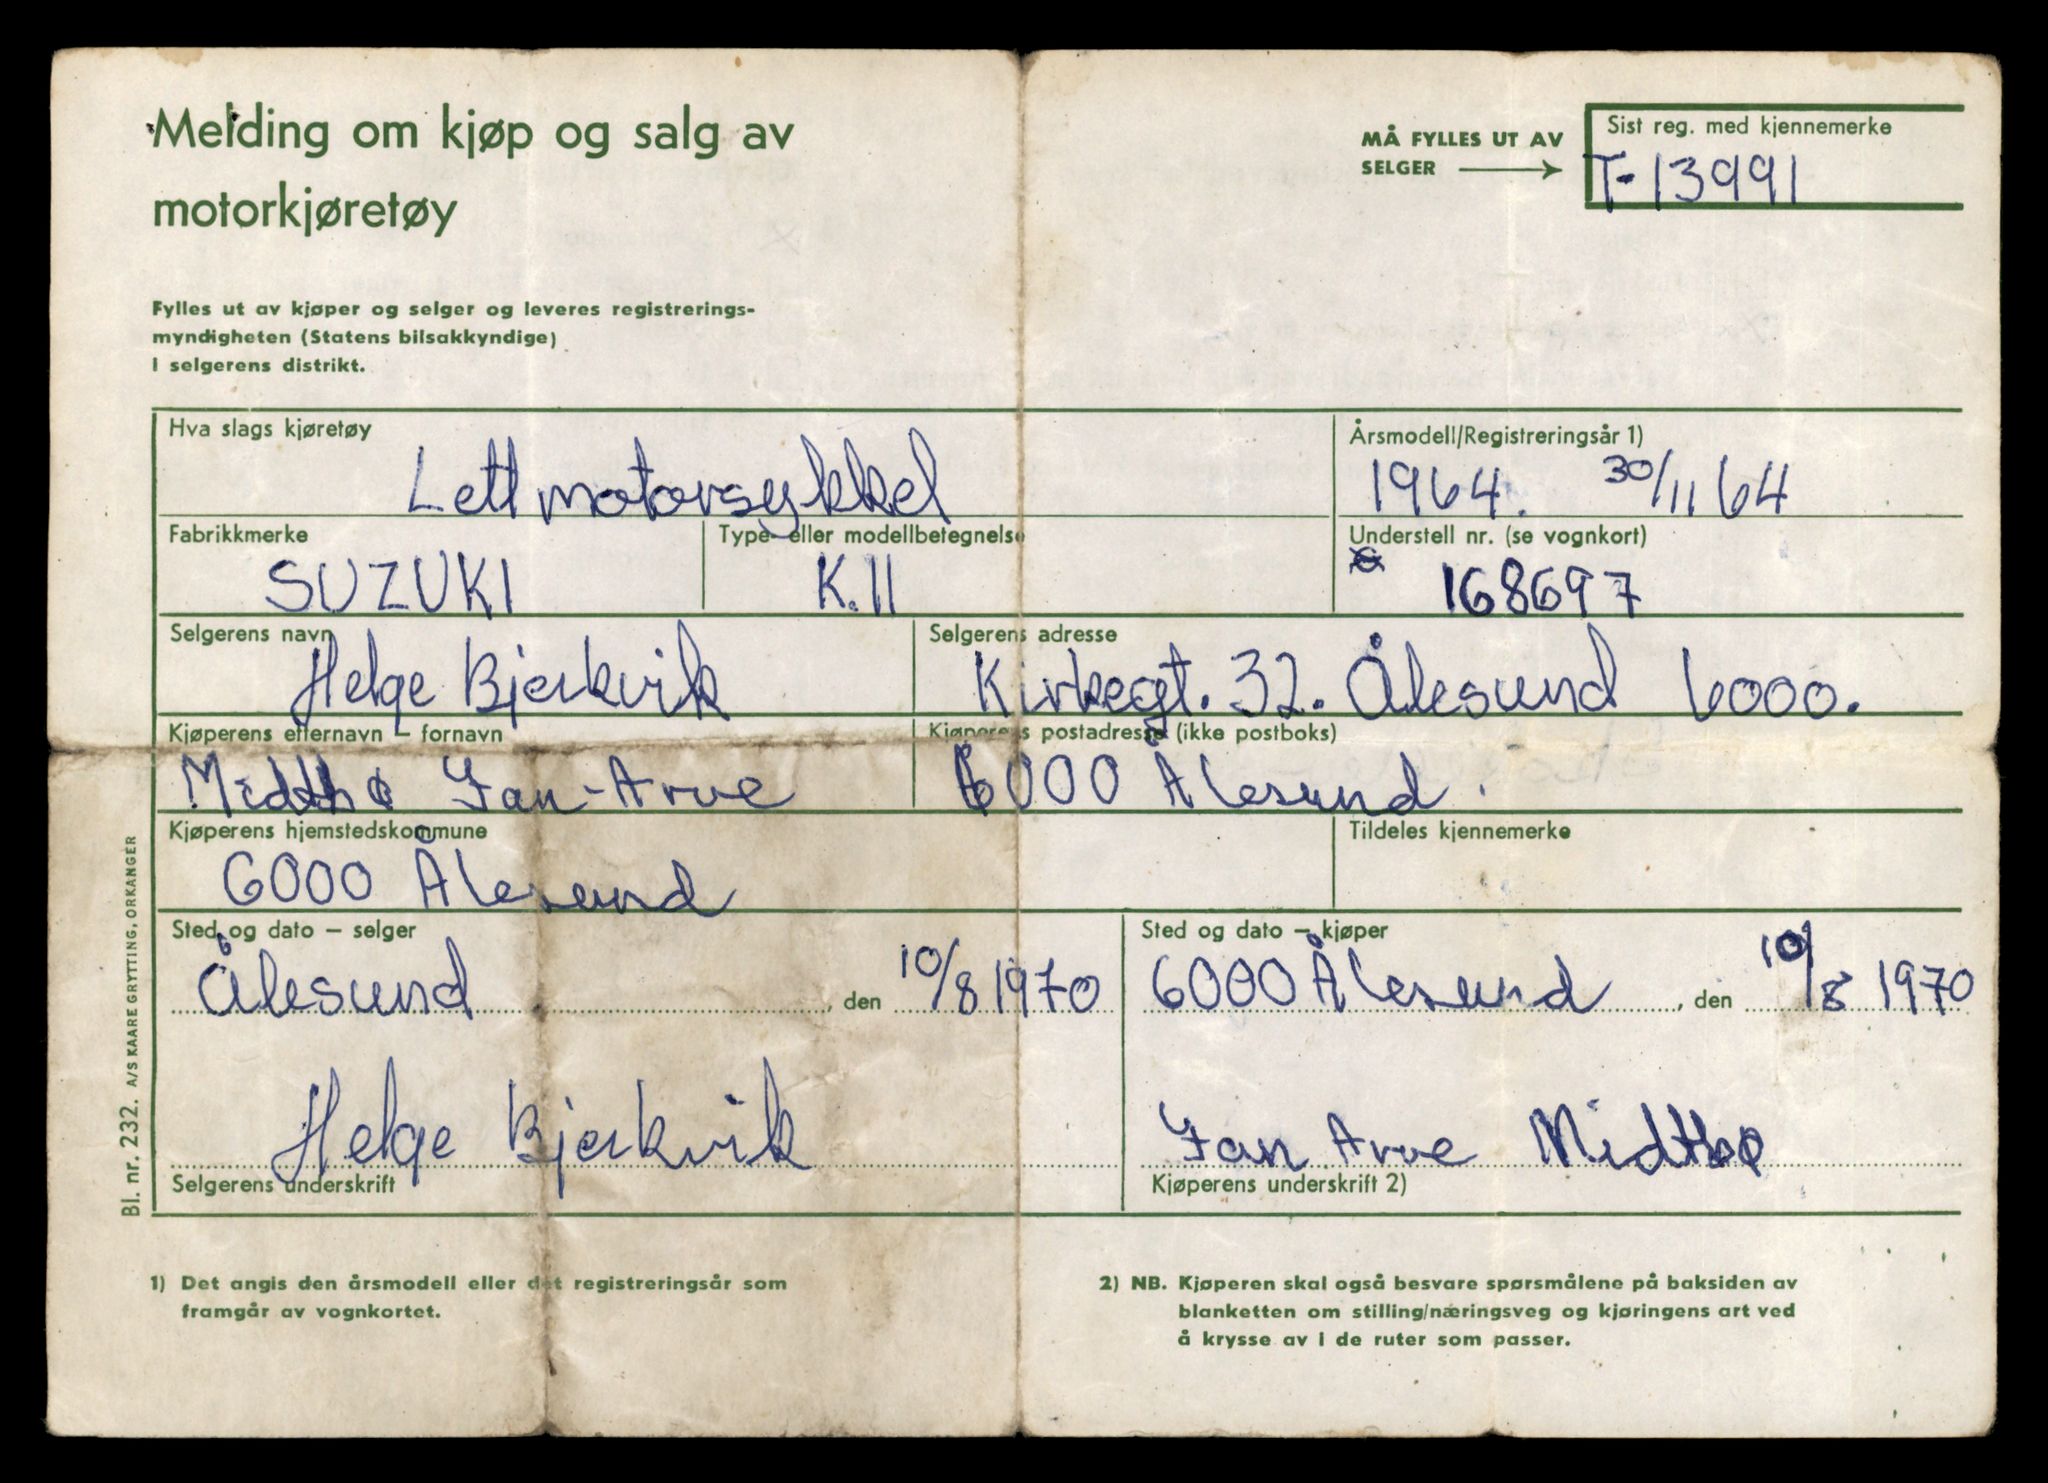 Melding om kjøp og salg av
motorkjøretøy
MÅ FYLLES UT AV
SELGER
Sist reg. med kjennemerke
T-13991
Fylles ut av kjøper og selger og leveres registrerings-
myndigheten (Statens bilsakkyndige)
i selgerens distrikt.
Hva slags kjøretøy
Lett motorsykkel
Årsmodell/Registreringsår 1)
1964. 30/11 64
Fabrikkmerke
SUZUKI
Type- eller modellbetegnelse
K.11
Understell nr. (se vognkort)
168697
Selgerens navn
Helge Bjerkvik
Selgerens adresse
Kirkegt. 32. Ålesund 6000.
Kjøperens etternavn – fornavn
Midthø Jan-Arve
Kjøperens postadresse (ikke postboks)
6000 Ålesund.
Kjøperens hjemstedskommune
6000 Ålesund
Tildeles kjennemerke
Sted og dato – selger
Ålesund, den 10/8 1970
Sted og dato – kjøper
6000 Ålesund, den 10/8 1970
Helge Bjerkvik
Selgerens underskrift
Jan Arve Midtbø
Kjøperens underskrift 2)
Bl. nr. 232. A/S KAARE GRYTTING, ORKANGER
1) Det angis den årsmodell eller det registreringsår som
framgår av vognkortet.
2) NB. Kjøperen skal også besvare spørsmålene på baksiden av
blanketten om stilling/næringsveg og kjøringens art ved
å krysse av i de ruter som passer.